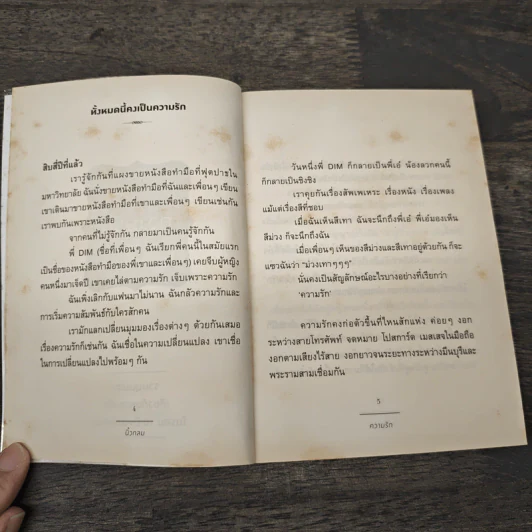 ทั้งหมดนี้คงเป็นความรัก
สิบสี่ปีที่แล้ว
เรารู้จักกันที่แผงขายหนังสือทำมือที่ฟุตปาธใน
มหาวิทยาลัย ฉันนั่งขายหนังสือทำมือที่ฉันและเพื่อนๆ เขียน
เขาเดินมาขายหนังสือทำมือที่เขาและเพื่อนๆ เขียนเช่นกัน
เราพบกันเพราะหนังสือ
จากคนที่ไม่รู้จักกัน กลายมาเป็นคนรู้จักกัน
พี่ DIM (ชื่อที่เพื่อนๆ ฉันเรียกพี่คนนี้ในสมัยแรก
เป็นชื่อของหนังสือทำมือของพี่เขาและเพื่อนๆ) เคยจีบผู้หญิง
คนหนึ่งมาเจ็ดปี เขาเคยไล่ตามความรัก เจ็บเพราะความรัก
ฉันเพิ่งเลิกกับแฟนมาไม่นาน ฉันกลัวความรักและ
การเริ่มความสัมพันธ์กับใครสักคน
เรามักแลกเปลี่ยนมุมมองเรื่องต่างๆ ด้วยกันเสมอ
เรื่องความรักก็เช่นกัน ฉันเชื่อในความเปลี่ยนแปลง เขาเชื่อ
ในการเปลี่ยนแปลงไปพร้อมๆ กัน
4
นิ้วกลม
วันหนึ่งพี่ DIM ก็กลายเป็นพี่เอ๋ น้องลวกคนนี้
ก็กลายเป็นชิงชิง
เราคุยกันเรื่องสัพเพเหระ เรื่องหนัง เรื่องเพลง
แม้แต่เรื่องสีที่ชอบ
เมื่อฉันเห็นสีเทา ฉันจะนึกถึงพี่เอ๋ พี่เอ๋มองเห็น
สีม่วง ก็จะนึกถึงฉัน
เมื่อเพื่อนๆ เห็นของสีม่วงและสีเทาอยู่ด้วยกัน ก็จะ
แซวฉันว่า "ม่วงเทาๆๆๆ"
นั่นคงเป็นสัญลักษณ์อะไรบางอย่างที่เรียกว่า
'ความรัก'
ความรักคงก่อตัวขึ้นที่ไหนสักแห่ง ค่อยๆ งอก
ระหว่างสายโทรศัพท์ จดหมาย โปสการ์ด เมสเสจในมือถือ
งอกตามเสียงไร้สาย งอกยาวจนระยะทางระหว่างมีนบุรีและ
พระรามสามเชื่อมกัน
5
ความรัก